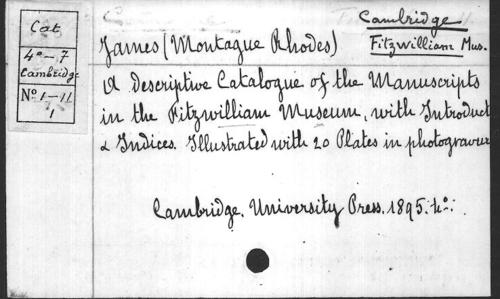 Cat
4º – 7
Cambridge
Nº 1–11
1
Cambridge
Fitzwilliam Mus.
James (Montague Rhodes)
A descriptive Catalogue of the Manuscripts
in the Fitzwilliam Museum, with Introduct
& Indices. Illustrated with 20 Plates in photogravure
Cambridge. University Press. 1895. 4º.